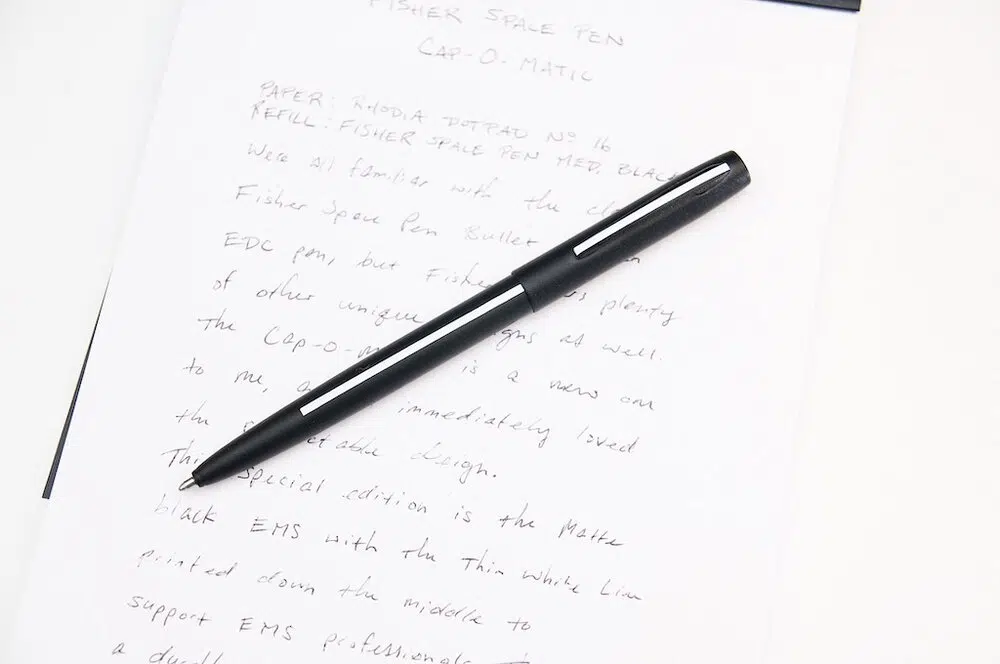 FISHER SPACE PEN
CAP-O-MATIC
PAPER: RHODIA DOTPAD Nº 16
REFILL: FISHER SPACE PEN MED. BLACK
Were all familiar with the
Fisher Space Pen Bullet
EDC pen, but Fisher plenty
of other unique as well.
The Cap-O- is a new one
to me, immediately loved
the design.
This special edition is the Matte
black EMS with the Thin White Line
printed down the middle to
support EMS professionals
a